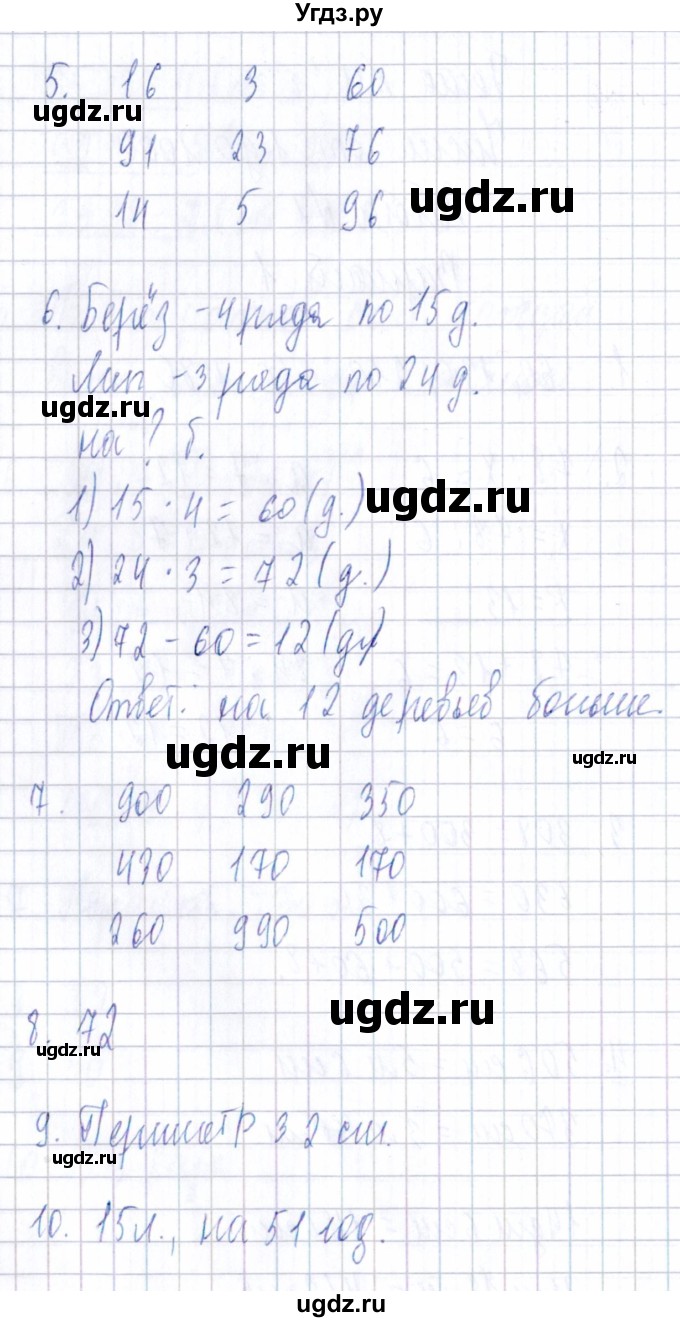 Угдз.ру
5. 16 3 60
ugdz.ru
91 23 76
ugdz.ru
14 5 96
6. Берёз - 4 ряда по 15 д.
Лип - 3 ряда по 24 д.
ugdz.ru
на ? б.
1) 15 · 4 = 60 (д.)
ugdz.ru
2) 24 · 3 = 72 (д.)
3) 72 - 60 = 12 (д.)
Ответ: на 12 деревьев больше.
ugdz.ru
ugdz.ru
7. 900 290 350
430 170 170
260 990 500
ugdz.ru
8. 72
ugdz.ru
9. Периметр 32 см.
ugdz.ru
10. 15 л., на 51 год.
ugdz.ru